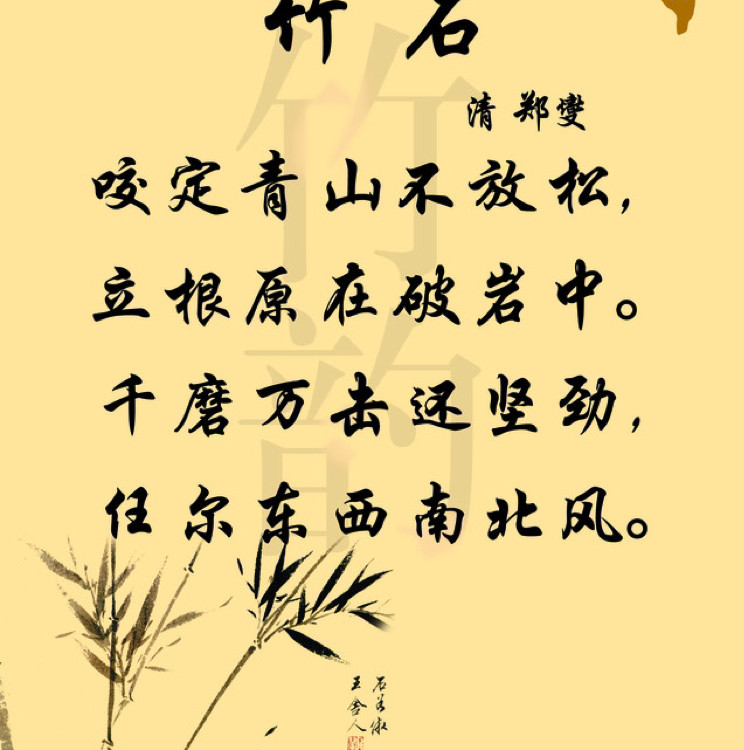 竹石
清 郑燮
咬定青山不放松，
立根原在破岩中。
千磨万击还坚劲，
任尔东西南北风。
竹韵